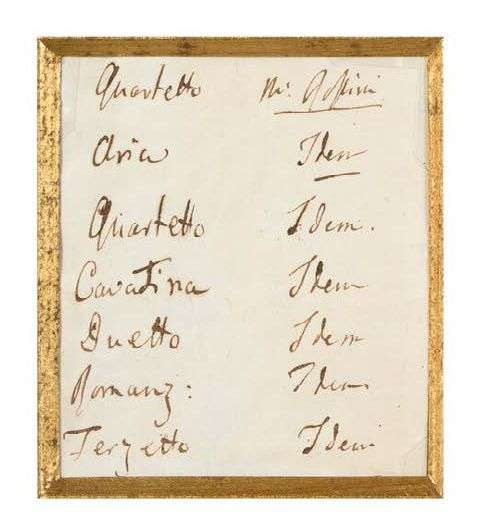 Quartetto Mr. Rossini
Aria Idem
Quartetto Idem.
Cavatina Idem
Duetto Idem
Romanz: Idem
Terzetto Idem